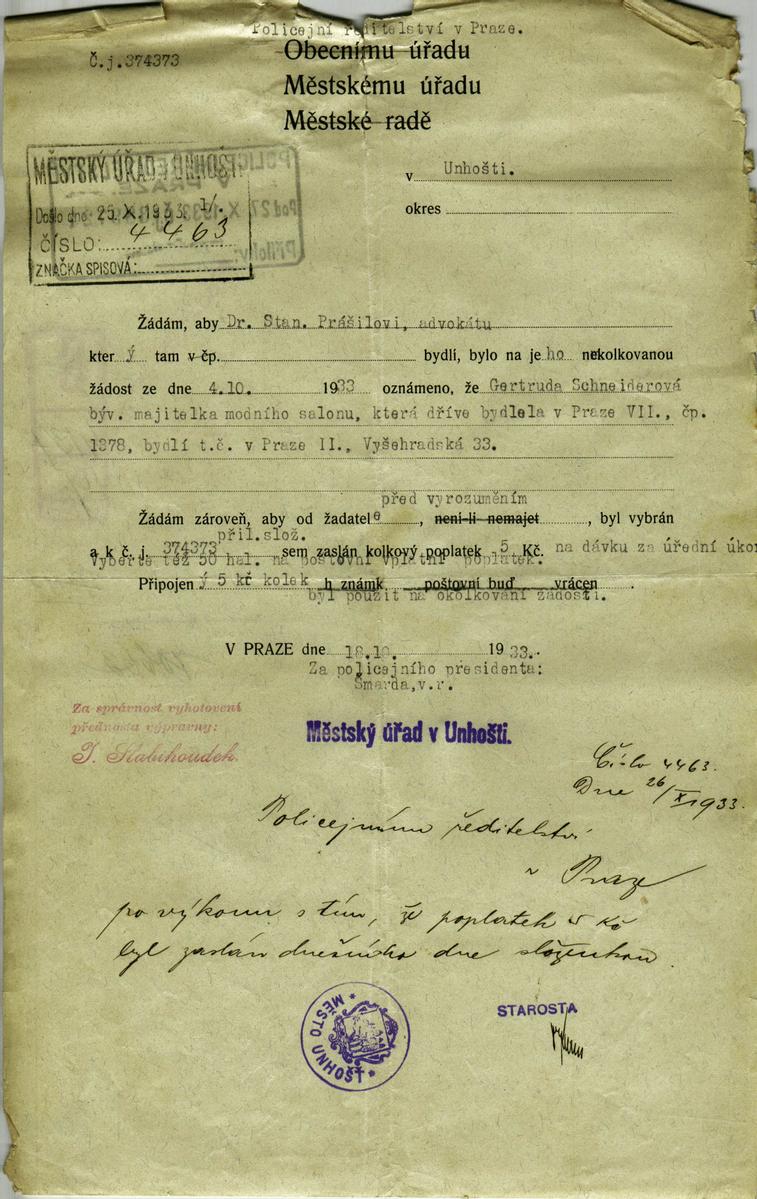 Policejní ředitelství v Praze.
Č.j.374373
Obecnímu úřadu
Městskému úřadu
Městské radě
MĚSTSKÝ ÚŘAD V UNHOŠTI.
Došlo dne 25.X.1933. 1/.
ČÍSLO: 4463
ZNAČKA SPISOVÁ:
v Unhošti.
okres
Žádám, aby Dr. Stan. Prášilovi, advokátu
který tam v čp. bydlí, bylo na jeho nekolkovanou
žádost ze dne 4.10. 1933 oznámeno, že Gertruda Schneiderová
býv. majitelka modního salonu, která dříve bydlela v Praze VII., čp.
1378, bydlí t.č. v Praze II., Vyšehradská 33.
před vyrozuměním
Žádám zároveň, aby od žadatele, není-li nemajet, byl vybrán
přil.slož.
a k č. j. 374373 sem zaslán kolkový poplatek 5 Kč. na dávku za úřední úkon
Vyberte též 50 hal. na poštovní vplatní poplatek.
Připojený 5 kč kolek h známk poštovní buď vrácen.
byl použit na okolkování žádosti.
V PRAZE dne 18.10. 1933.
Za policejního presidenta:
Šmarda,v.r.
Za správnost vyhotovení
přednosta výpravny:
Městský úřad v Unhošti.
Číslo 4463.
Dne 26/X 1933.
Policejnímu ředitelství
v Praze
po výkonu s tím, že poplatek 5 Kč
byl zaslán dnešního dne složenkou.
STAROSTA
MĚSTO UNHOŠŤ